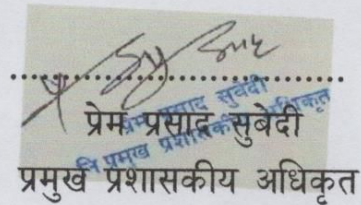 प्रेम प्रसाद सुवेदी
नि प्रमुख प्रशासकीय अधिकृत
प्रेम प्रसाद सुबेदी
प्रमुख प्रशासकीय अधिकृत